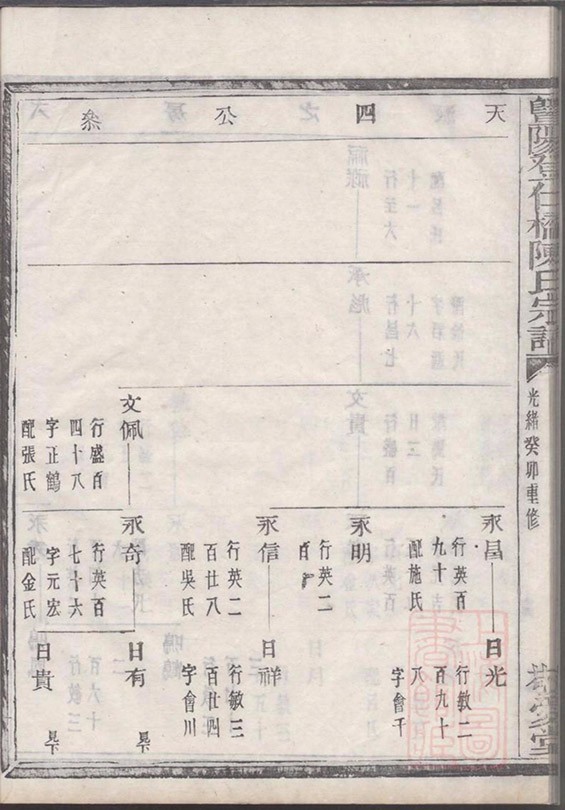 暨陽登仕橋陳氏宗譜
光緒癸卯重修
天四公叅
永昌
行英百
九十
配施氏
日光
行敏二
百九十
八
字會千
永明
行英二
百
永信
行英二
百廿八
配吳氏
日祥
行敏三
百廿四
字會川
文佩
行盛百
四十八
字正鶴
配張氏
永奇
行英百
七十六
字元宏
配金氏
日有
日貴